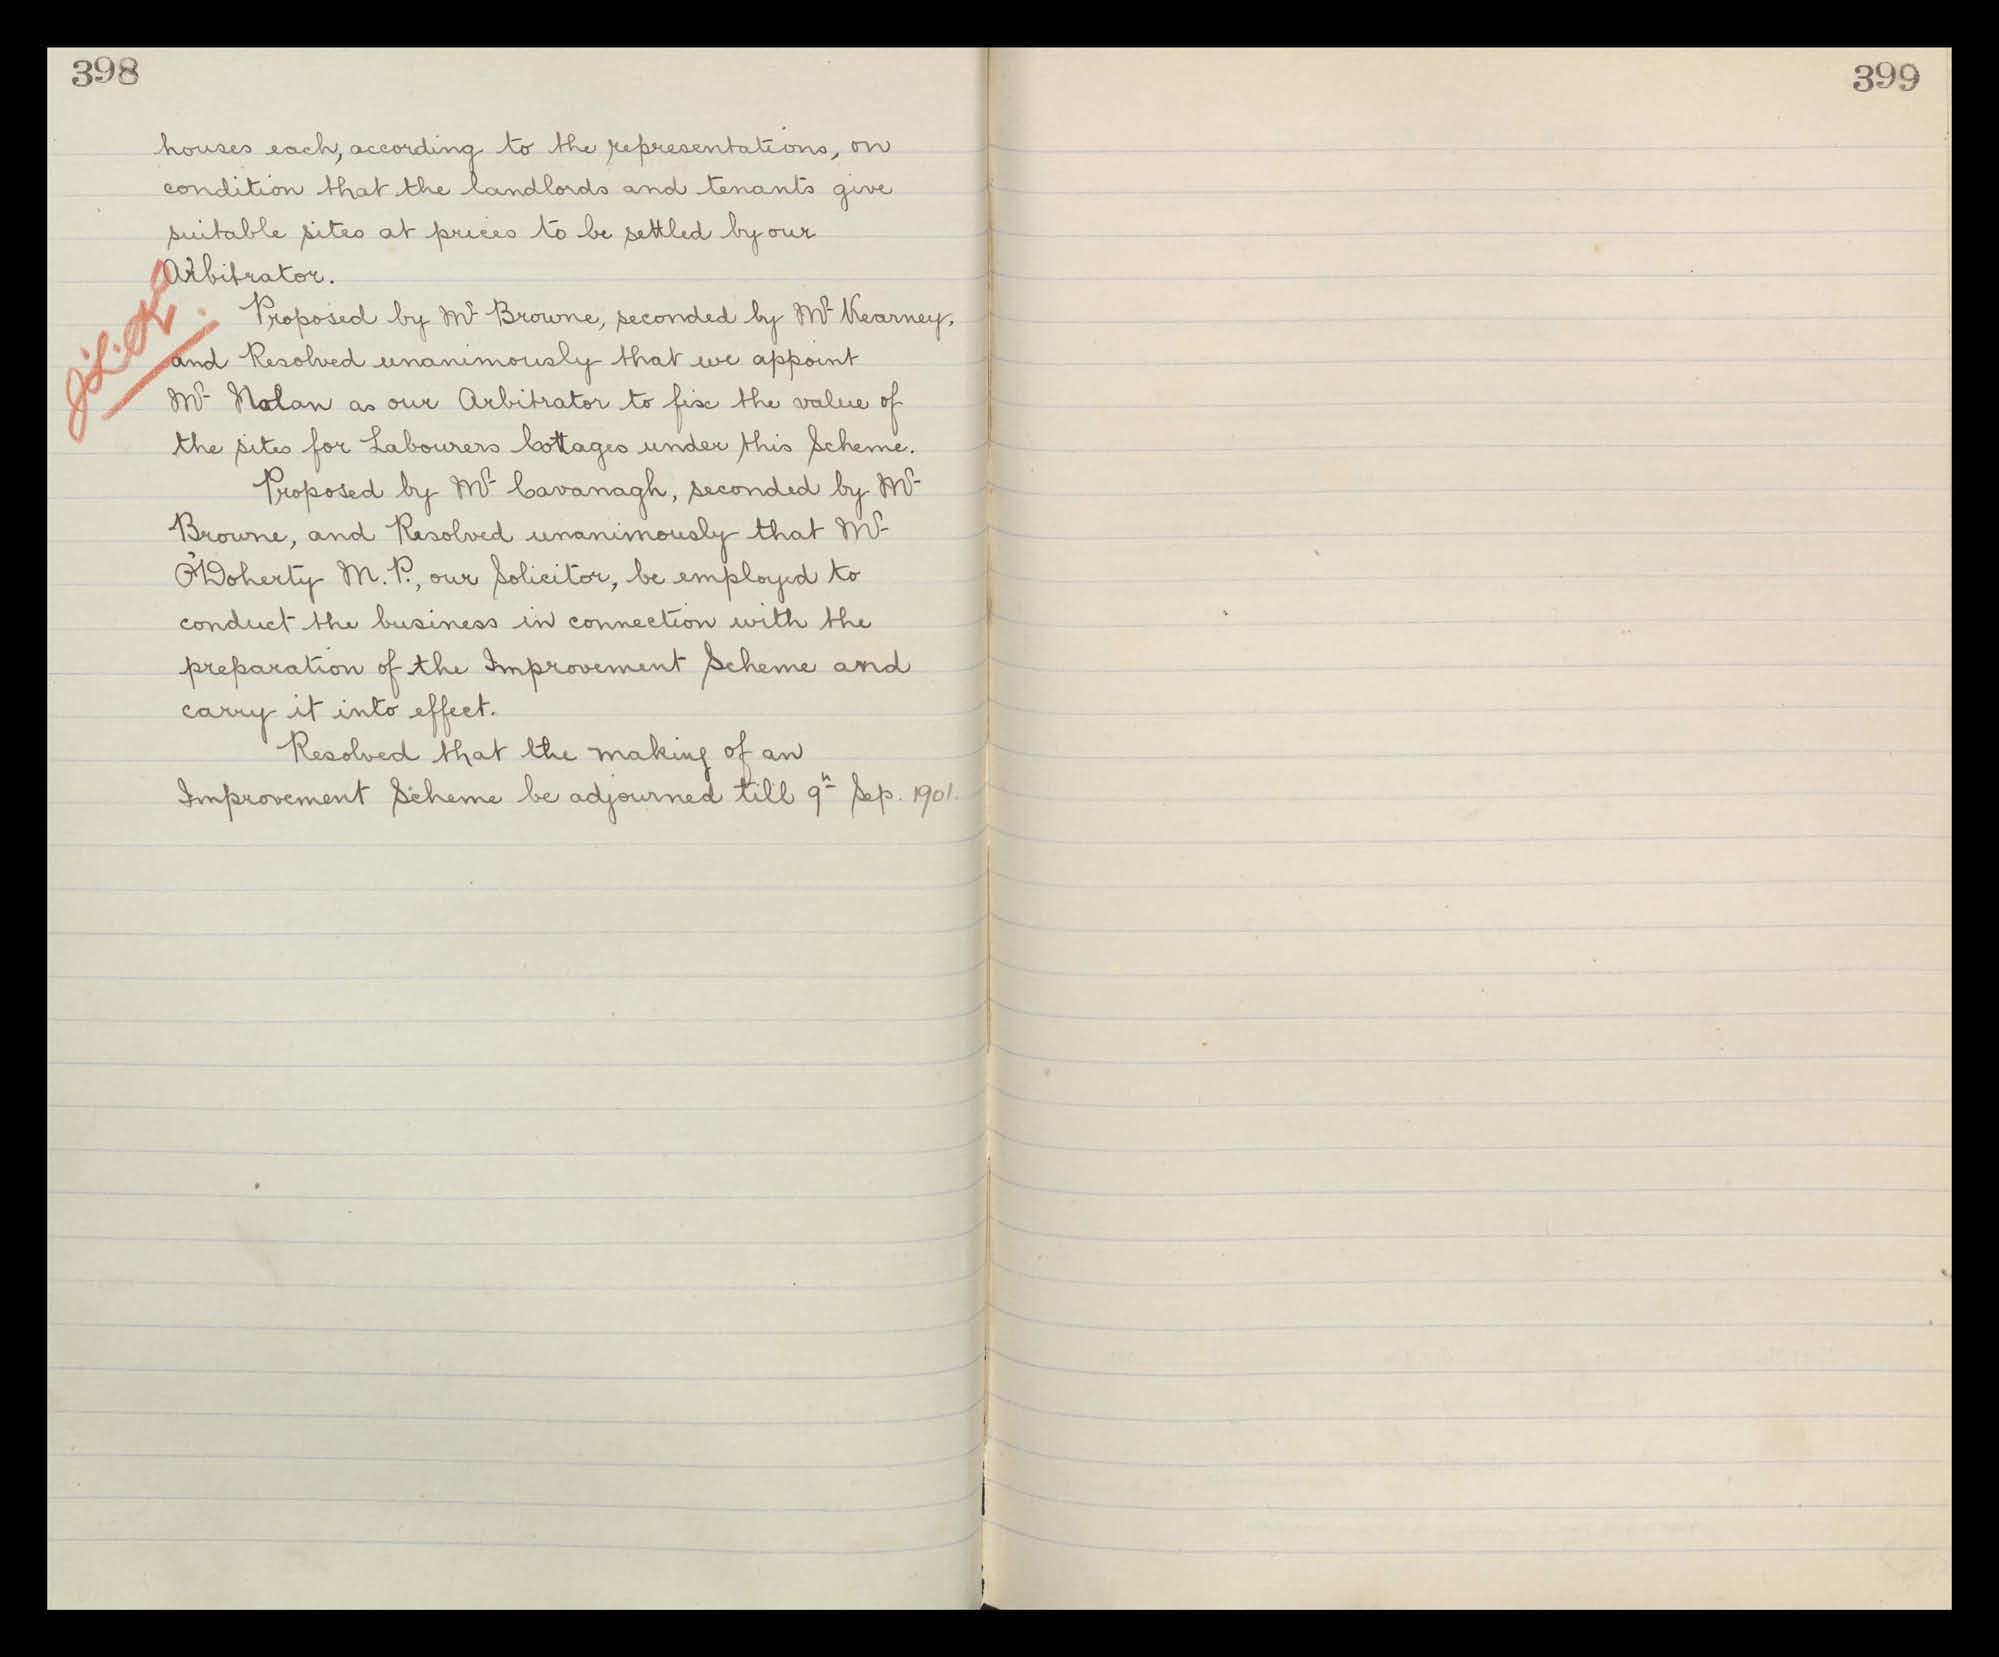 398
houses each, according to the representations, on
condition that the landlords and tenants give
suitable sites at prices to be settled by our
Arbitrator.
Proposed by Mr Browne, seconded by Mr Kearney,
and Resolved unanimously that we appoint
Mr Nolan as our Arbitrator to fix the value of
the sites for Labourers Cottages under this Scheme.
Proposed by Mr Cavanagh, seconded by Mr
Browne, and Resolved unanimously that Mr
O'Doherty M.P., our Solicitor, be employed to
conduct the business in connection with the
preparation of the Improvement Scheme and
carry it into effect.
Resolved that the making of an
Improvement Scheme be adjourned till 9th Sep. 1901.
399